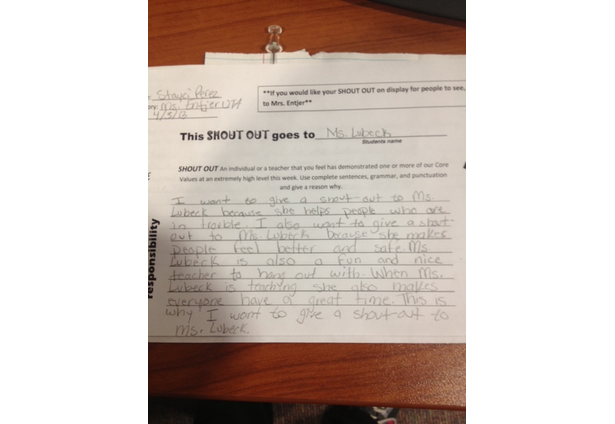 Stayci Perez
**If you would like your SHOUT OUT on display for people to see,
Ms. Entjer
to Mrs. Entjer**
4/3/13
This SHOUT OUT goes to Ms. Lubeck
Students name
SHOUT OUT An individual or a teacher that you feel has demonstrated one or more of our Core
Values at an extremely high level this week. Use complete sentences, grammar, and punctuation
and give a reason why.
responsibility
I want to give a shout out to Ms.
Lubeck because she helps people who are
in trouble. I also want to give a shout
out to Ms. Lubeck because she makes
people feel better and safe. Ms.
Lubeck is also a fun and nice
teacher to hang out with. When Ms.
Lubeck is teaching she also makes
everyone have a great time. This is
why I want to give a shout-out to
Ms. Lubeck.